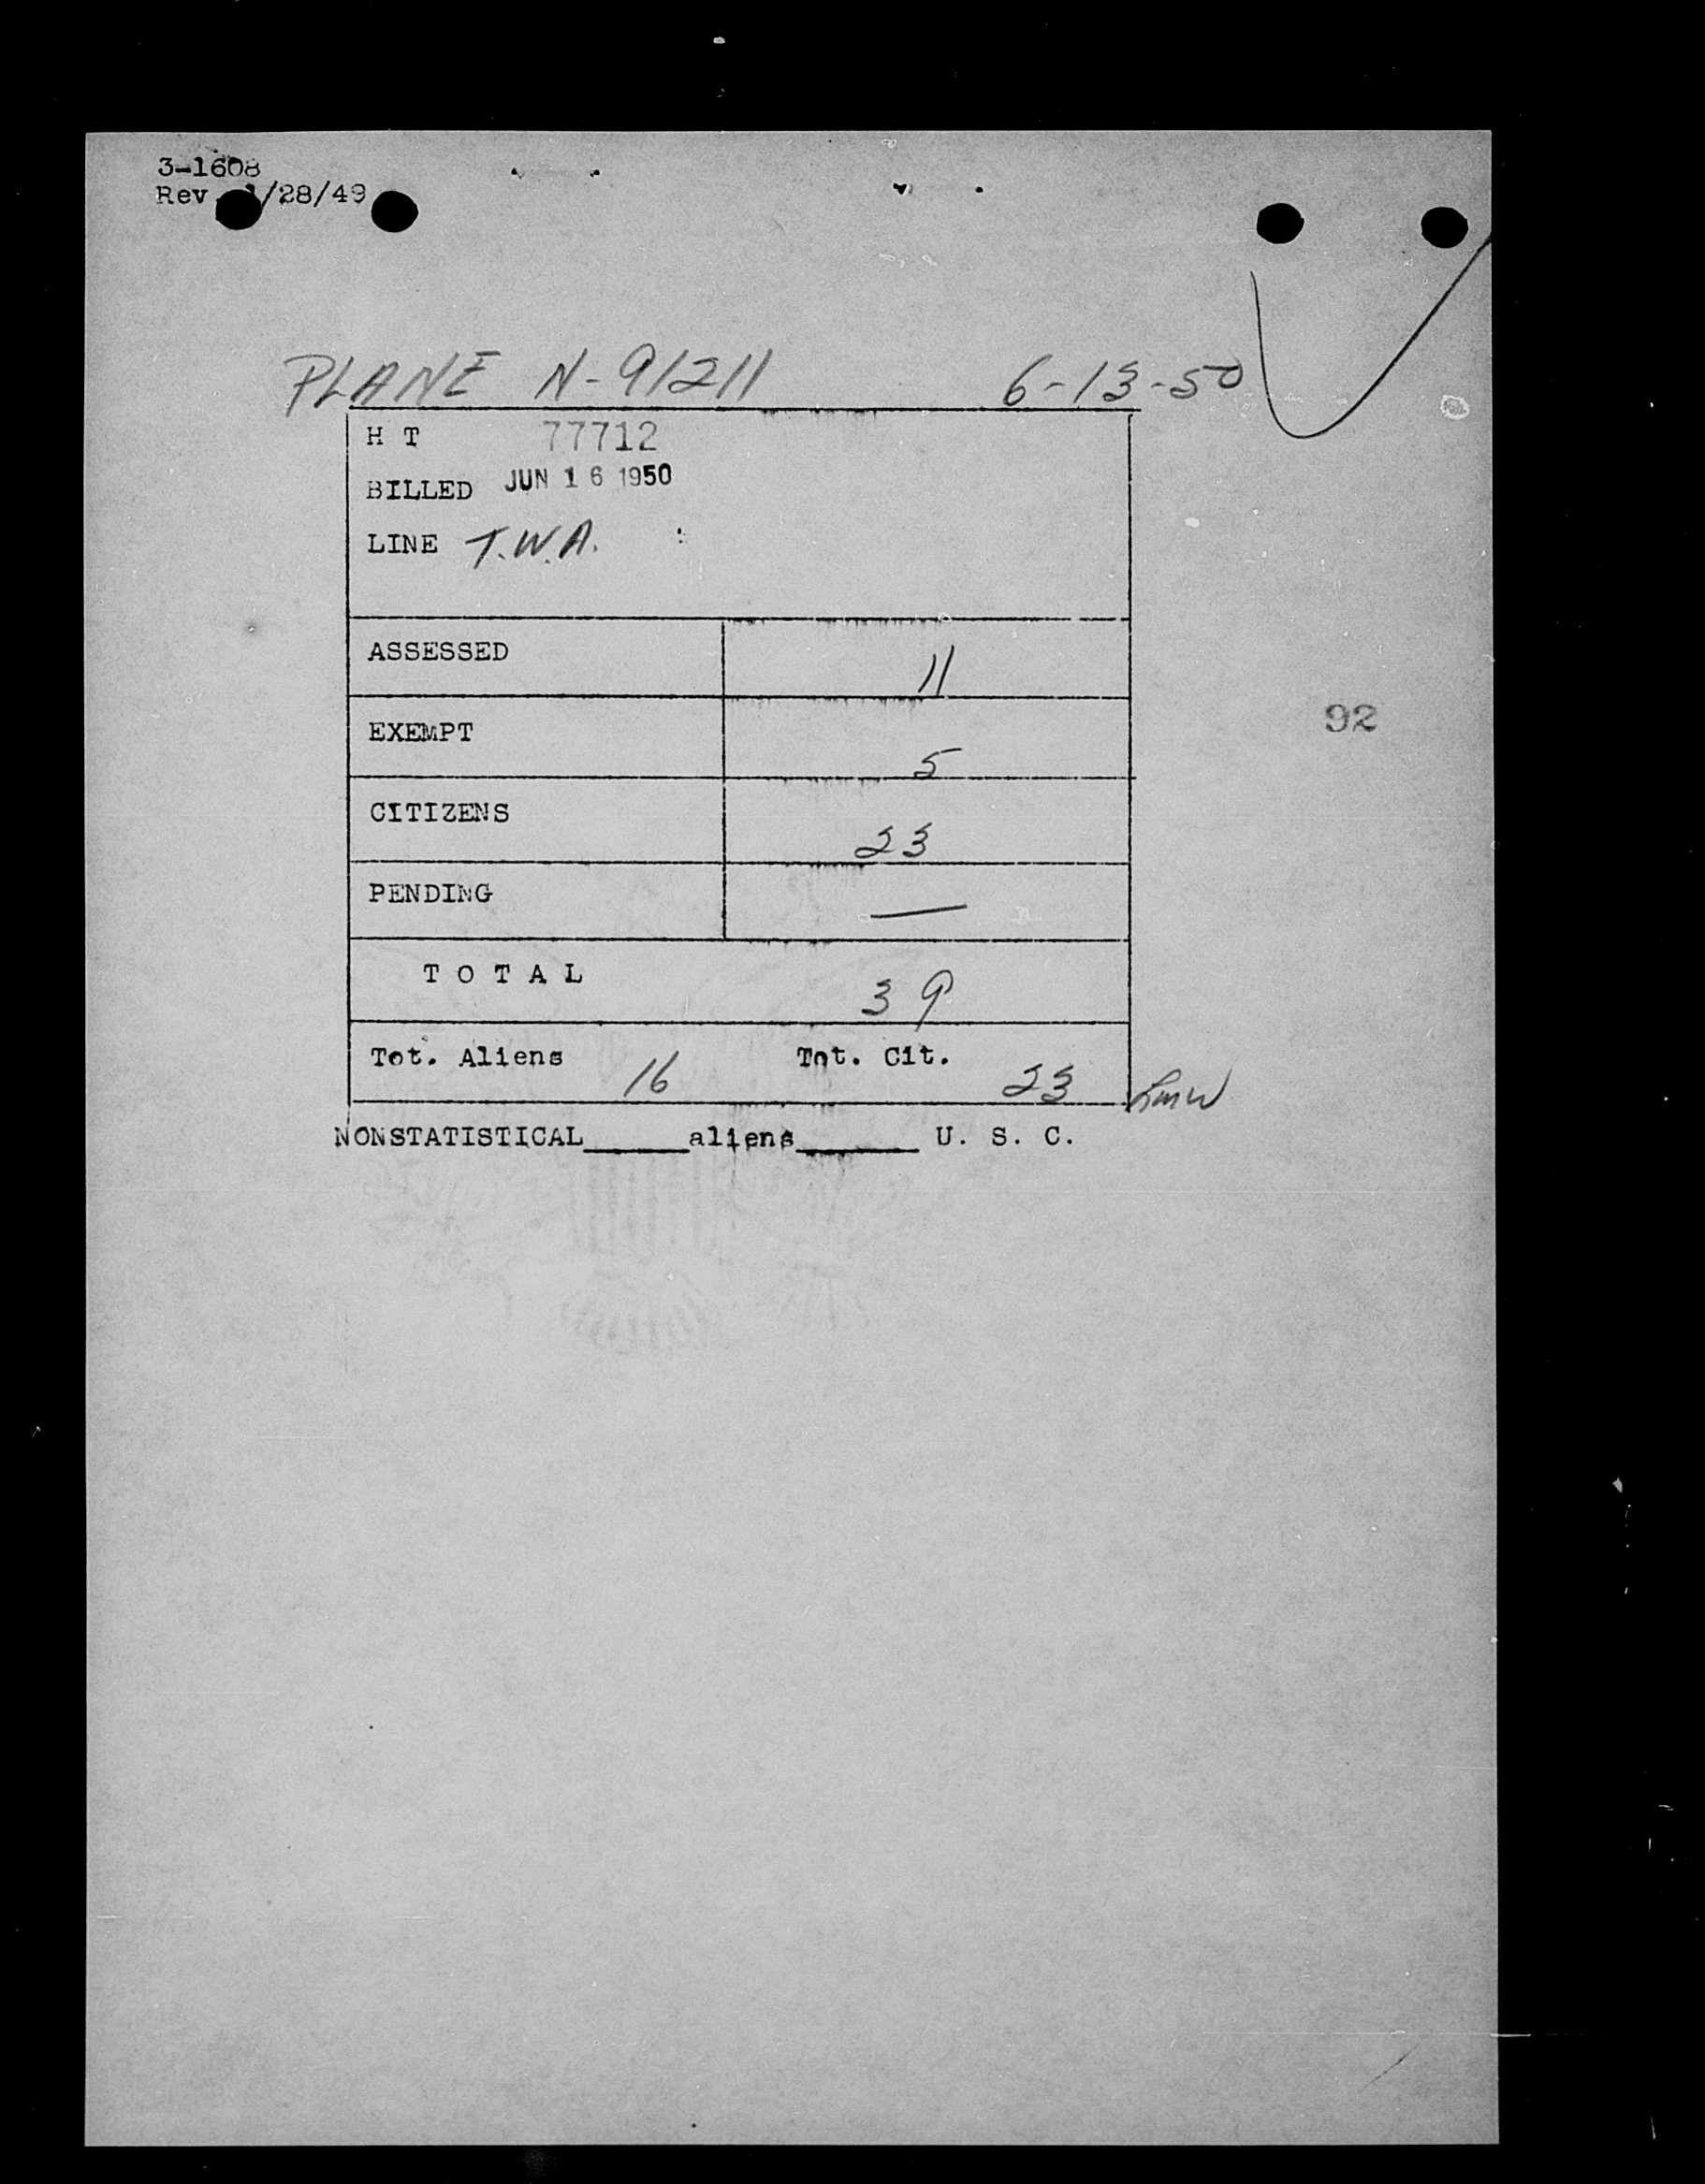 3-1608
Rev. /28/49
PLANE N-91211 6-13-50
H T 77712
BILLED JUN 16 1950
LINE T.W.A.
ASSESSED 11
EXEMPT 5
92
CITIZENS 23
PENDING —
T O T A L 39
Tot. Aliens 16 Tot. Cit. 23
NONSTATISTICAL______aliens_______ U. S. C.